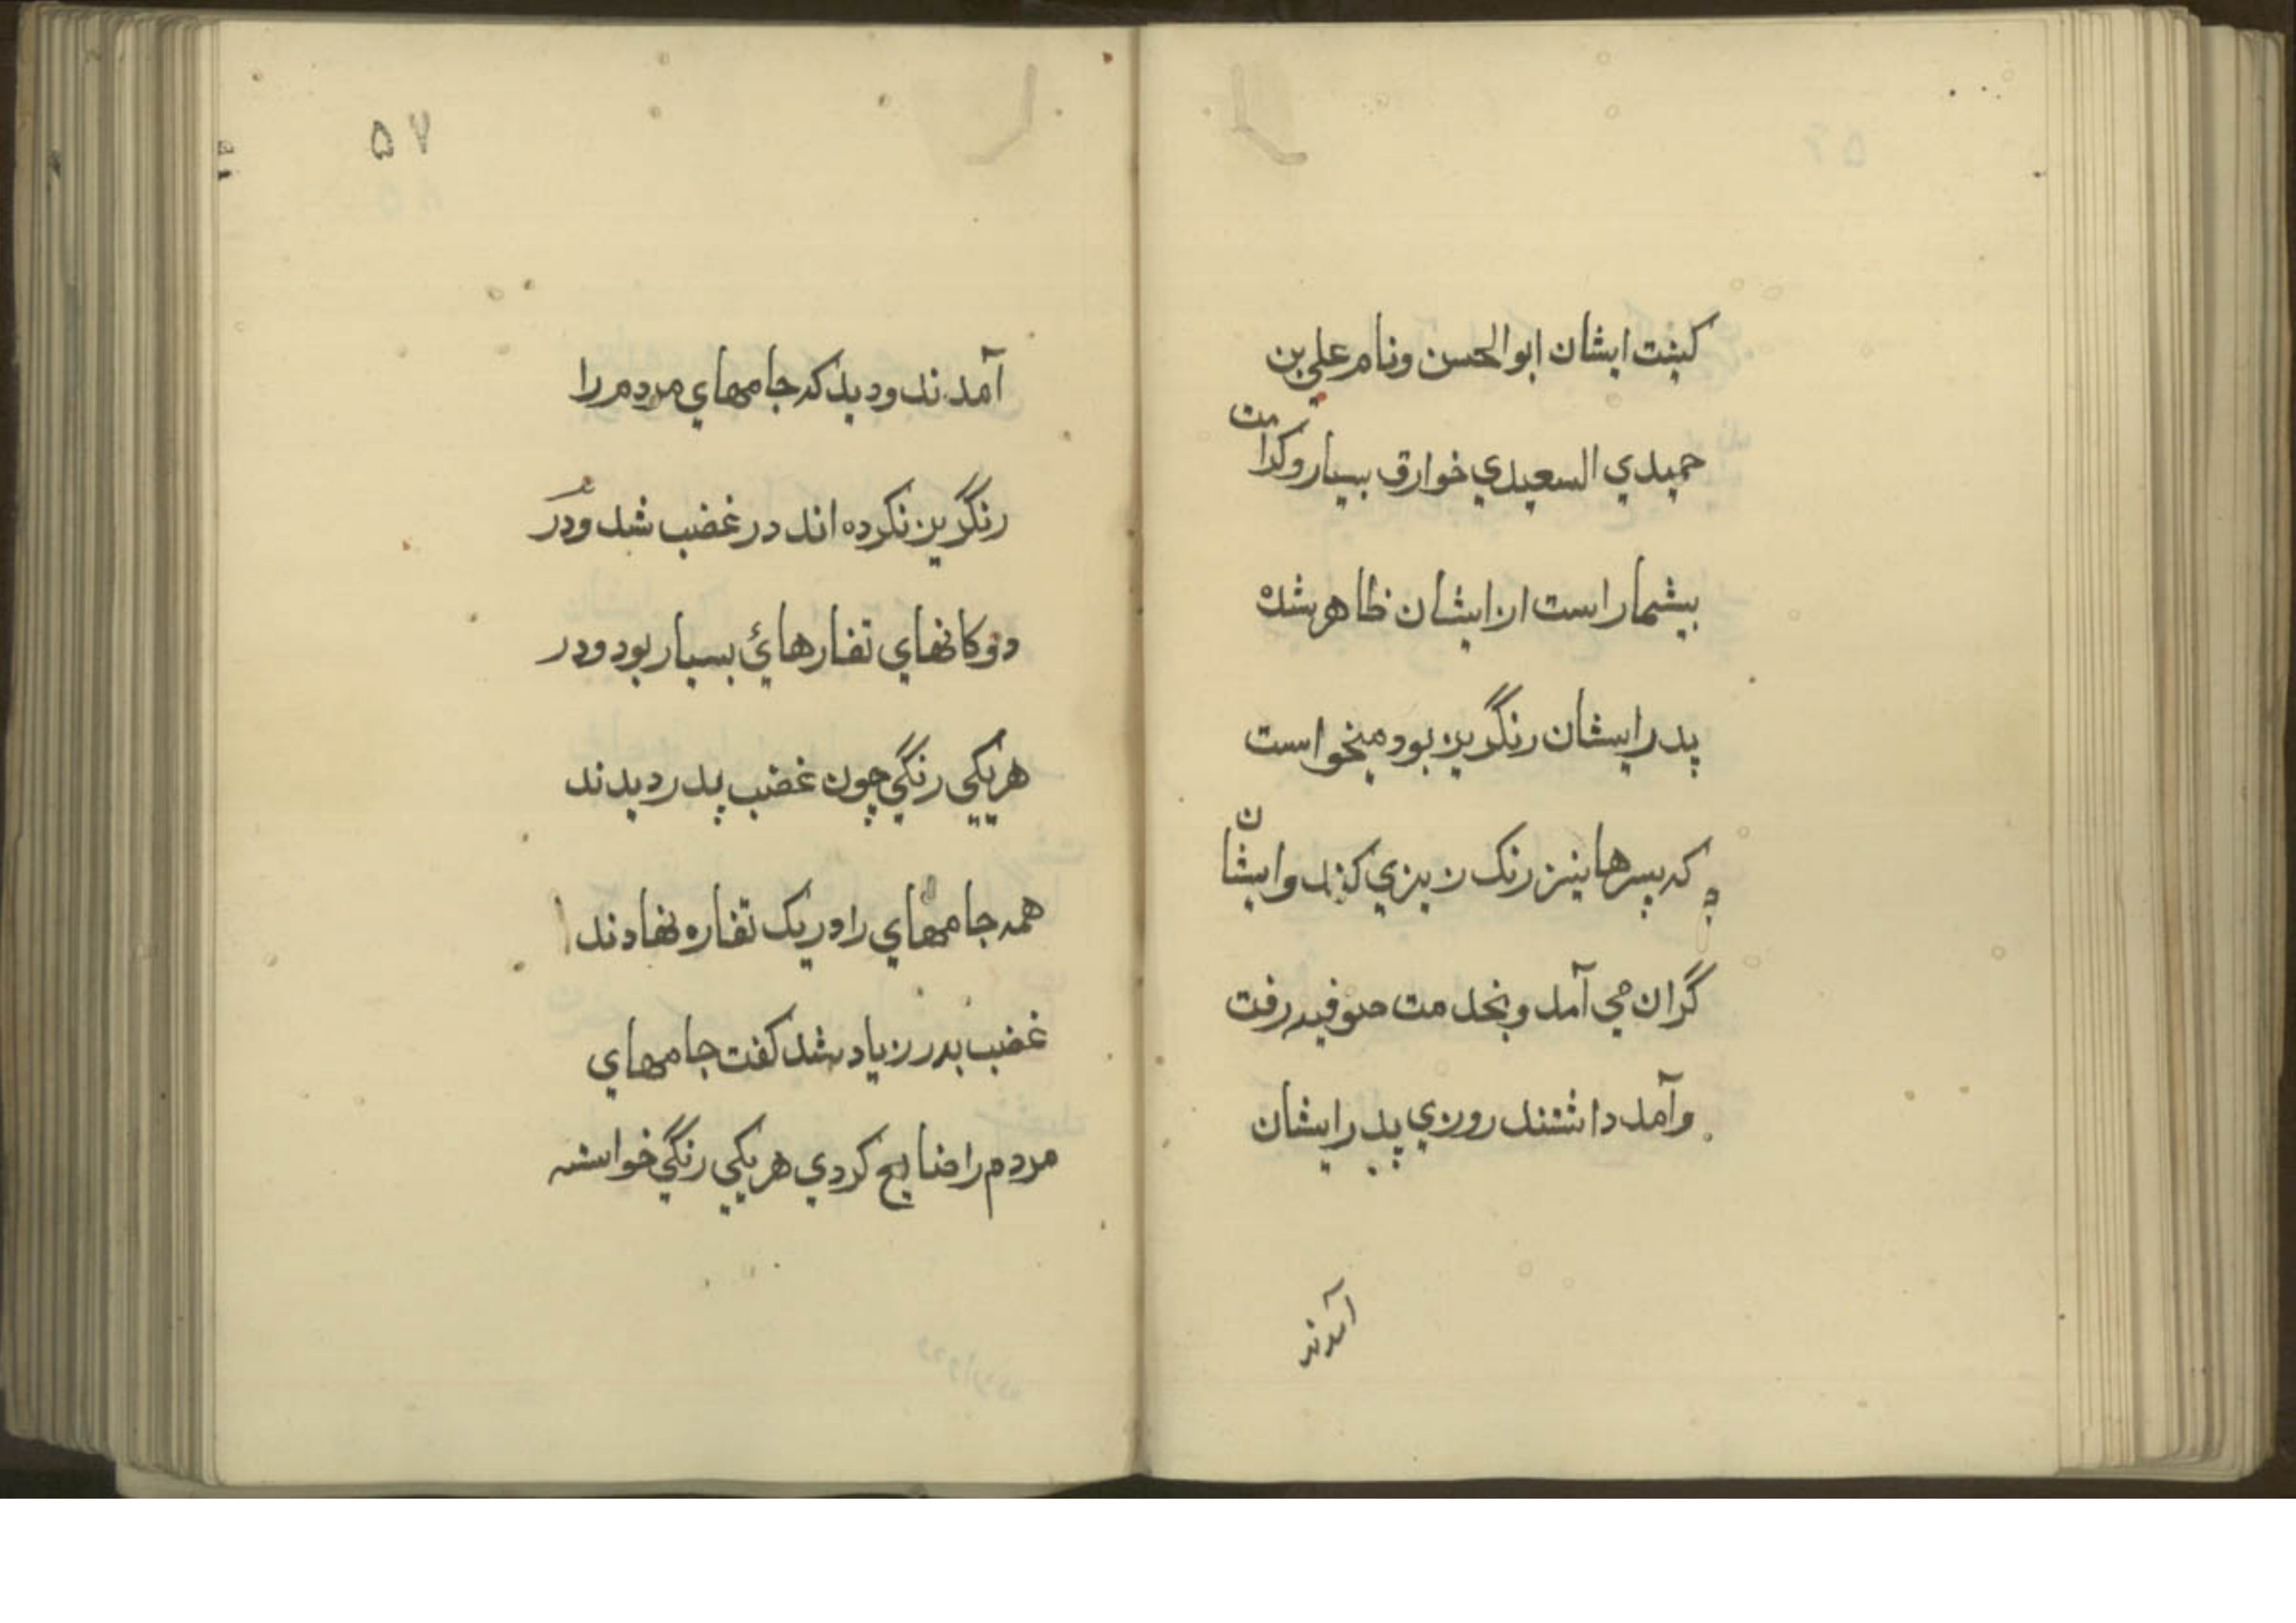 کینت ایشان ابوالحسن ونام علي بن
حمیدي السعیدي خوارق بسیار وکرامت
بیشمار است از ایشان ظاهر شده
پدر ایشان رنگریز بود میخواست
که پسرها نیز رنک ریزي کند وایشان
گران مي آمد وبخدمت صوفیه رفت
وآمد داشتند روزي پدر ایشان
آمدند
۵۷
آمدند ودید که جامهاي مردم را
رنگریز نکرده اند در غضب شد ودر
دوکانهاي تغارهائ بسیار بود ودر
هریکي رنگي چون غضب پدر دیدند
همه جامهاي را در یک تغاره نهادند
غضب پدر زیاد شد کفت جامهاي
مردم را ضایع کردي هریکي رنگي خواسته